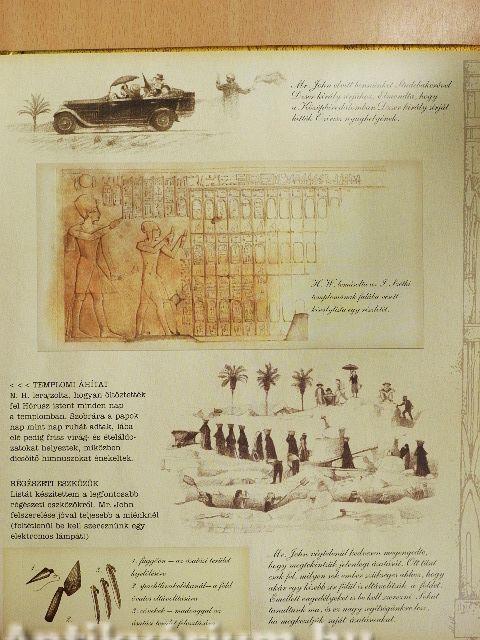 Mr. John elvitt bennünket Studebakerével
Dzser király sírjához. Elmondta, hogy
a Középbirodalomban Dzser király sírját
hitték Ozirisz nyughelyének.
H. W. lemásolta az I. Széthi
templomának falába vésett
királylista egy részletét.
< < < TEMPLOMI ÁHÍTAT
N. H. lerajzolta, hogyan öltöztették
fel Hórusz istent minden nap
a templomban. Szobrára a papok
nap mint nap ruhát adtak, lába
elé pedig friss virág- és ételáldo-
zatokat helyeztek, miközben
dicsőítő himnuszokat énekeltek.
RÉGÉSZETI ESZKÖZÖK
Listát készítettem a legfontosabb
régészeti eszközökről. Mr. John
felszerelése jóval teljesebb a miénknél
(feltétlenül be kell szereznünk egy
elektromos lámpát!)
1. függőón — az ásatási terület
kijelölésére
2. spachli
a föld
óvatos eltávolítására
3. cövekek — madzaggal az
ásatási terület felosztására
Mr. John végtelenül kedvesen megengedte,
hogy megtekintsük jelenlegi ásatását. Ott láttuk
csak
milyen sok ember szükséges ahhoz, hogy
akár egy kisebb területről is eltávolítsák a földet.
Emellett engedélyeket is be kell szerezni. Sokat
tanultunk ma, és ez nagy segítségünkre lesz,
ha megkezdjük saját ásatásunkat.